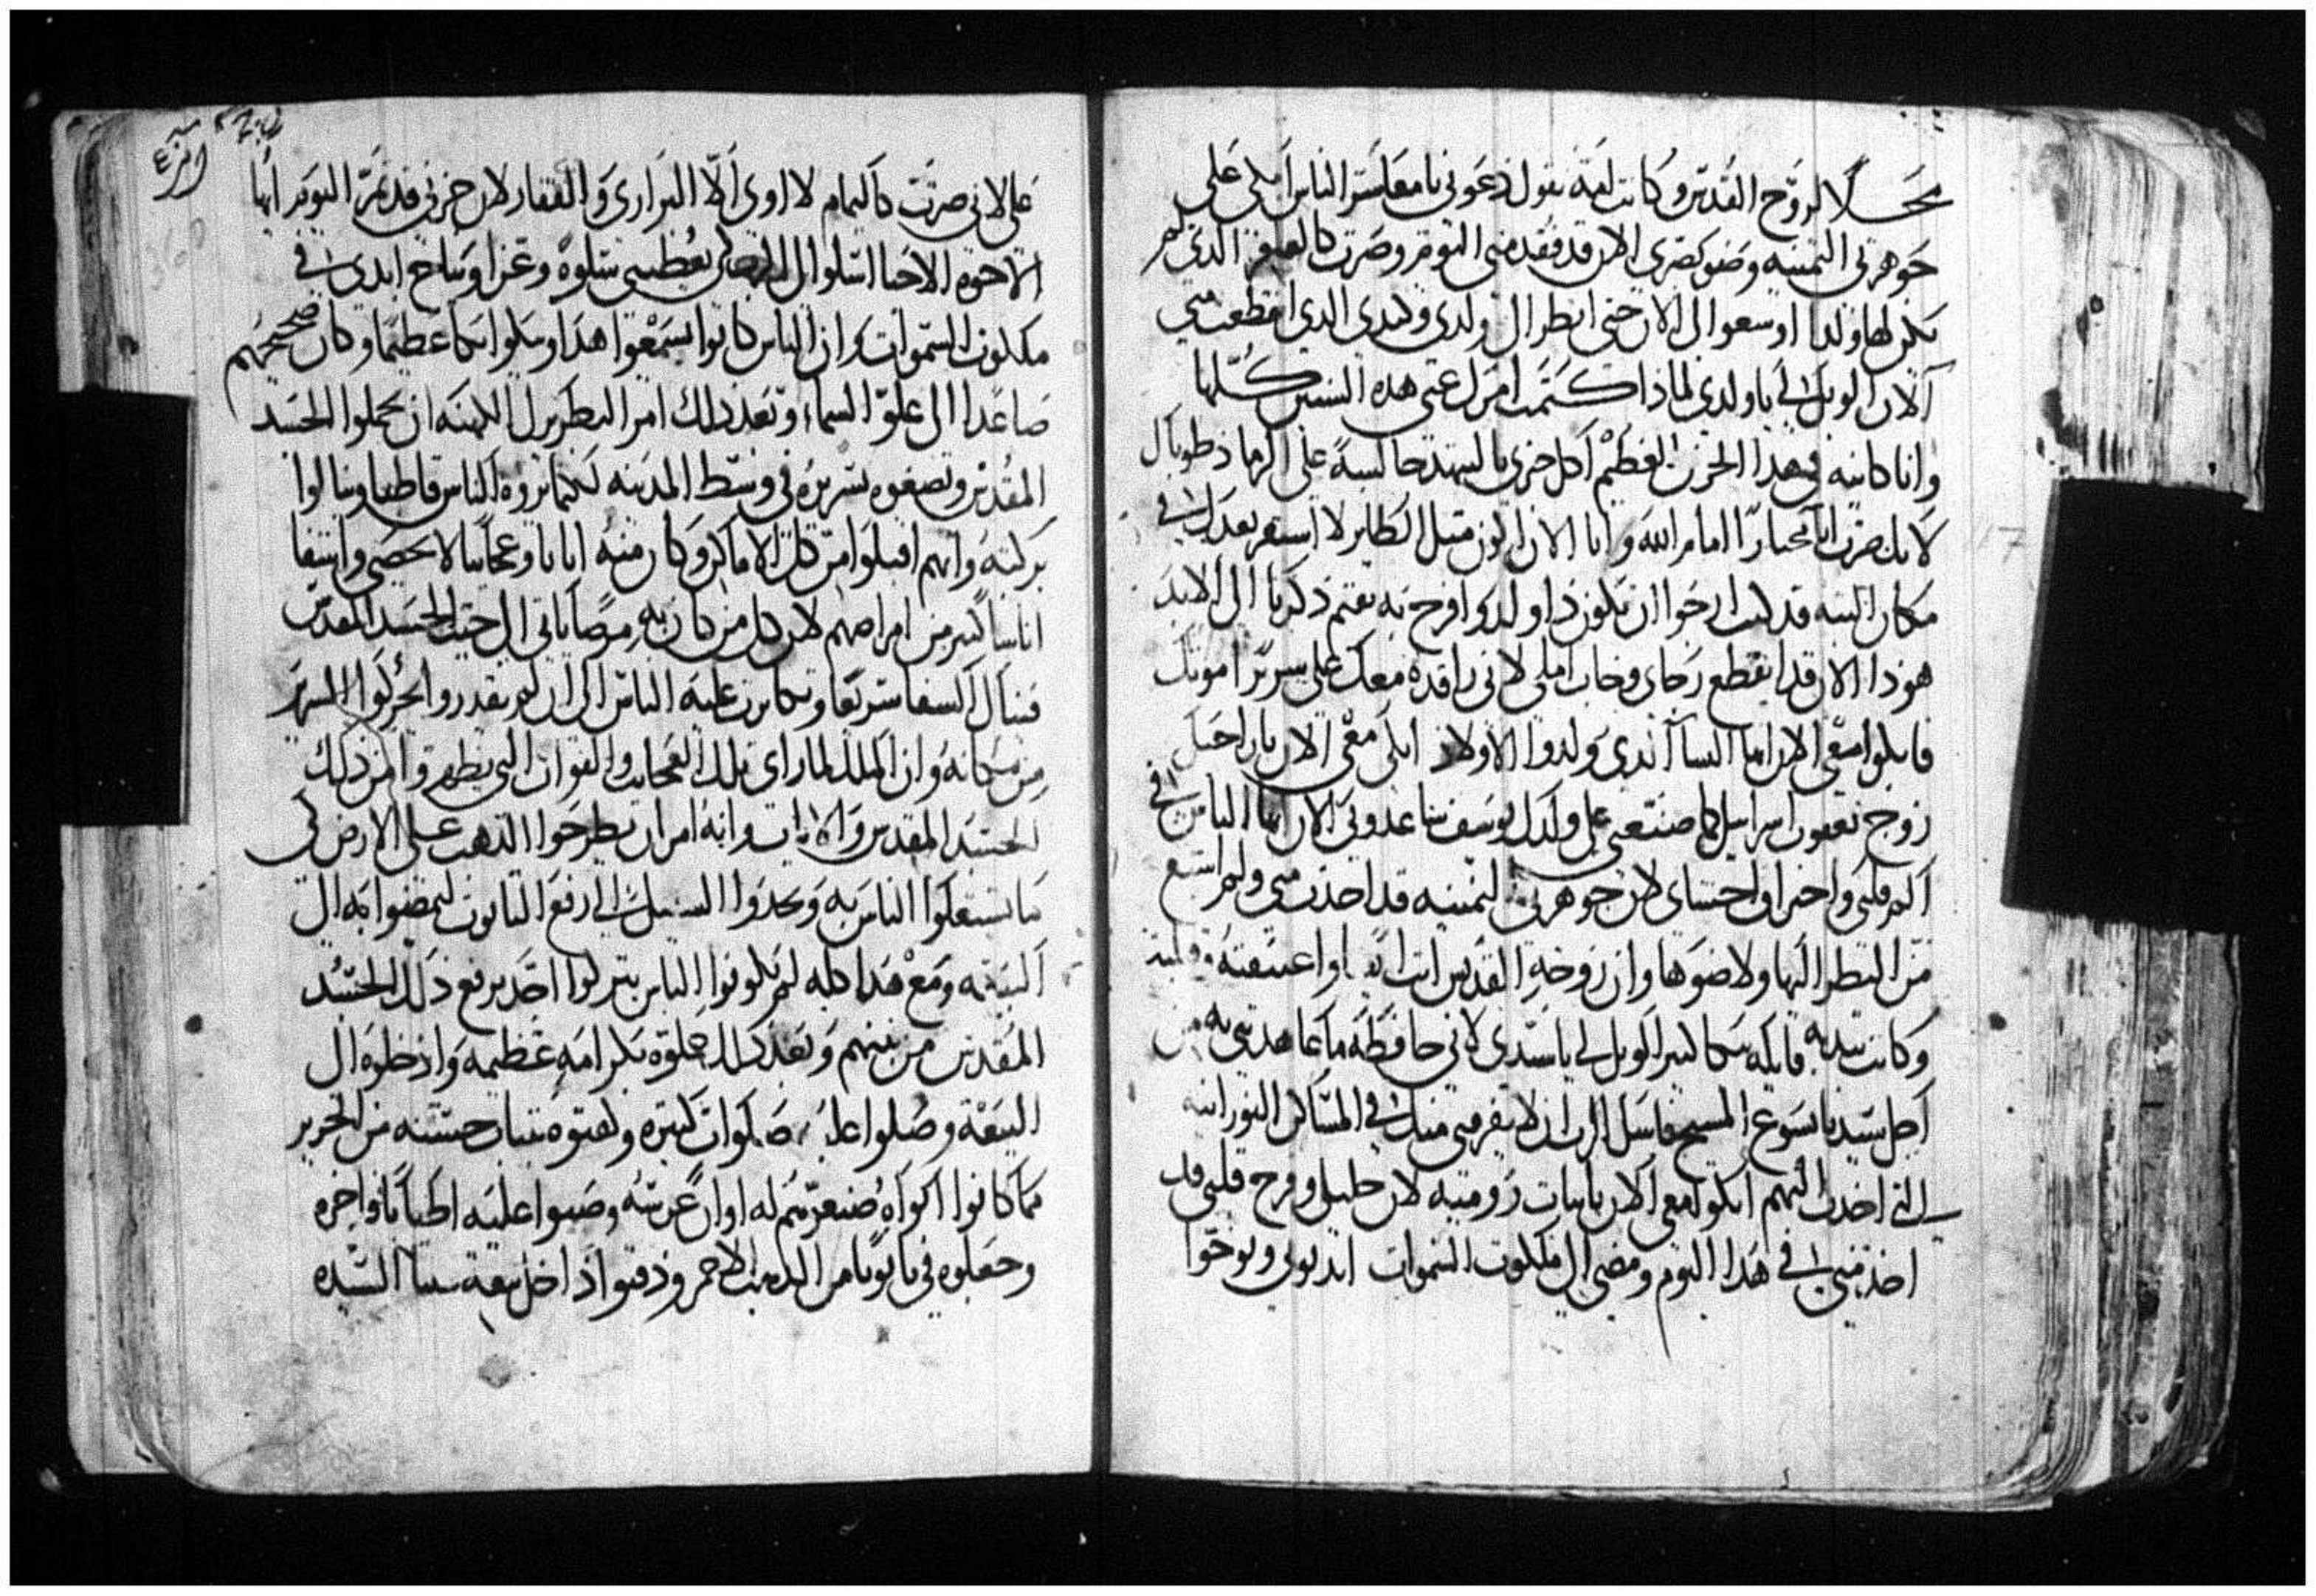 محلا للروح القدس وكانت امه تقول دعوني يا معاشر الناس ابكي على
جوهرتي التمينه وضو بصري الان قد فقد مني اليوم وصرت كالعاقر الذي لم
يكن لها ولدا اوسعوا لي الان حتى انظر الى ولدي وكبدي الذي انقطعت مني
الان الويل لي يا ولدي لماذا كتمت امرك عني هذه السنين كلها
وانا كاينه في هذا الحزن العظيم اكل خبزي بالتنهد جالسة على الرماد طوباك
لانك صرت انا مختارا امام الله وانا الان اكون متل الطاير لا استقر بعدك في
مكان البته قد كنت ارجوا ان تكون ذا ولد وافرح به يقيم ذكرنا الى الابد
هوذا الان قد انقطع رجاي وخاب املي لاني راقدة معك على سرير اموتك
فابكوا معي الان ايها النسا الذي ولدوا الاولاد ابكي معي الان يا راحيل
زوج يعقوب اسراييل كما صنعتي على ولدك يوسف ساعدوني الان ايها الناس في
الم قلبي واحتراق احشاي لان جوهرتي التمينه قد اخذت مني ولم اشبع
من النظر اليها ولا ضوها وان زوجة القديس اتت ايضا واعتنقته وقبلته
وكانت تندبه قايله بكا كتير الويل لي يا سيدي لاني حافظة ما عاهدتني به من
اجل سيدنا يسوع المسيح فاسل الرب ان لا يفرقني منك في المساكن النورانيه
التي اخذت اليهم ابكوا معي الان يا بنات روميه لان خليلي وفرح قلبي قد
اخذ مني في هذا اليوم ومضى الى ملكوت السموات اندبوني ونوحوا
على لاني صرت كاليمام لا اوي الا البراري والقفار لان حزني قد تمر اليوم ايها
الاخوه الاحبا اسلوا الى الله ان يعطيني سلوة وعزا ونياح ابدي في
ملكوت السموات وان الناس كانوا يسمعوا هذا ويبكوا بكا عظيما وكان ضجيجهم
صاعدا الى علو السماء وبعد ذلك امر البطريرك الكهنه ان يحملوا الجسد
المقدس ويضعوه بسريره في وسط المدينه لكيما يروه الناس قاطبا وينالوا
بركته وانهم اقبلوا من كل الاماكن وكان منه ايات وعجايبا لا تحصى واشفا
اناسا كتير من امراضهم لان كل من كان به مرضا ياتي الى حيت الجسد المقدس
فينال الشفا سريعا وتكاترت عليه الناس الى ان لم يقدروا يحركوا السرير
من مكانه وان الملك لما راى تلك العجايب والقوات التي يظهروا من ذلك
الجسد المقدس والايات وانه امر ان يطرحوا الدهب على الارض لكي
ما يشتغلوا الناس به ويجدوا السبيل الى رفع التابوت ليمضوا به الى
البيعه ومع هذا كله لم يكونوا الناس يتركوا احد يرفع ذلك الجسد
المقدس من بينهم وبعد ذلك حملوه بكرامه عظيمه وادخلوه الى
البيعة وصلوا عليه صلوات كتيره ولفوه بتياب حسنه من الحرير
مما كانوا ابواه صنعوهم له اوان عرسه وصبوا عليه اطيابا فاخره
وجعلوه في تابوتا من الدهب الاحمر ودفنوا داخل بيعة ستنا السيده